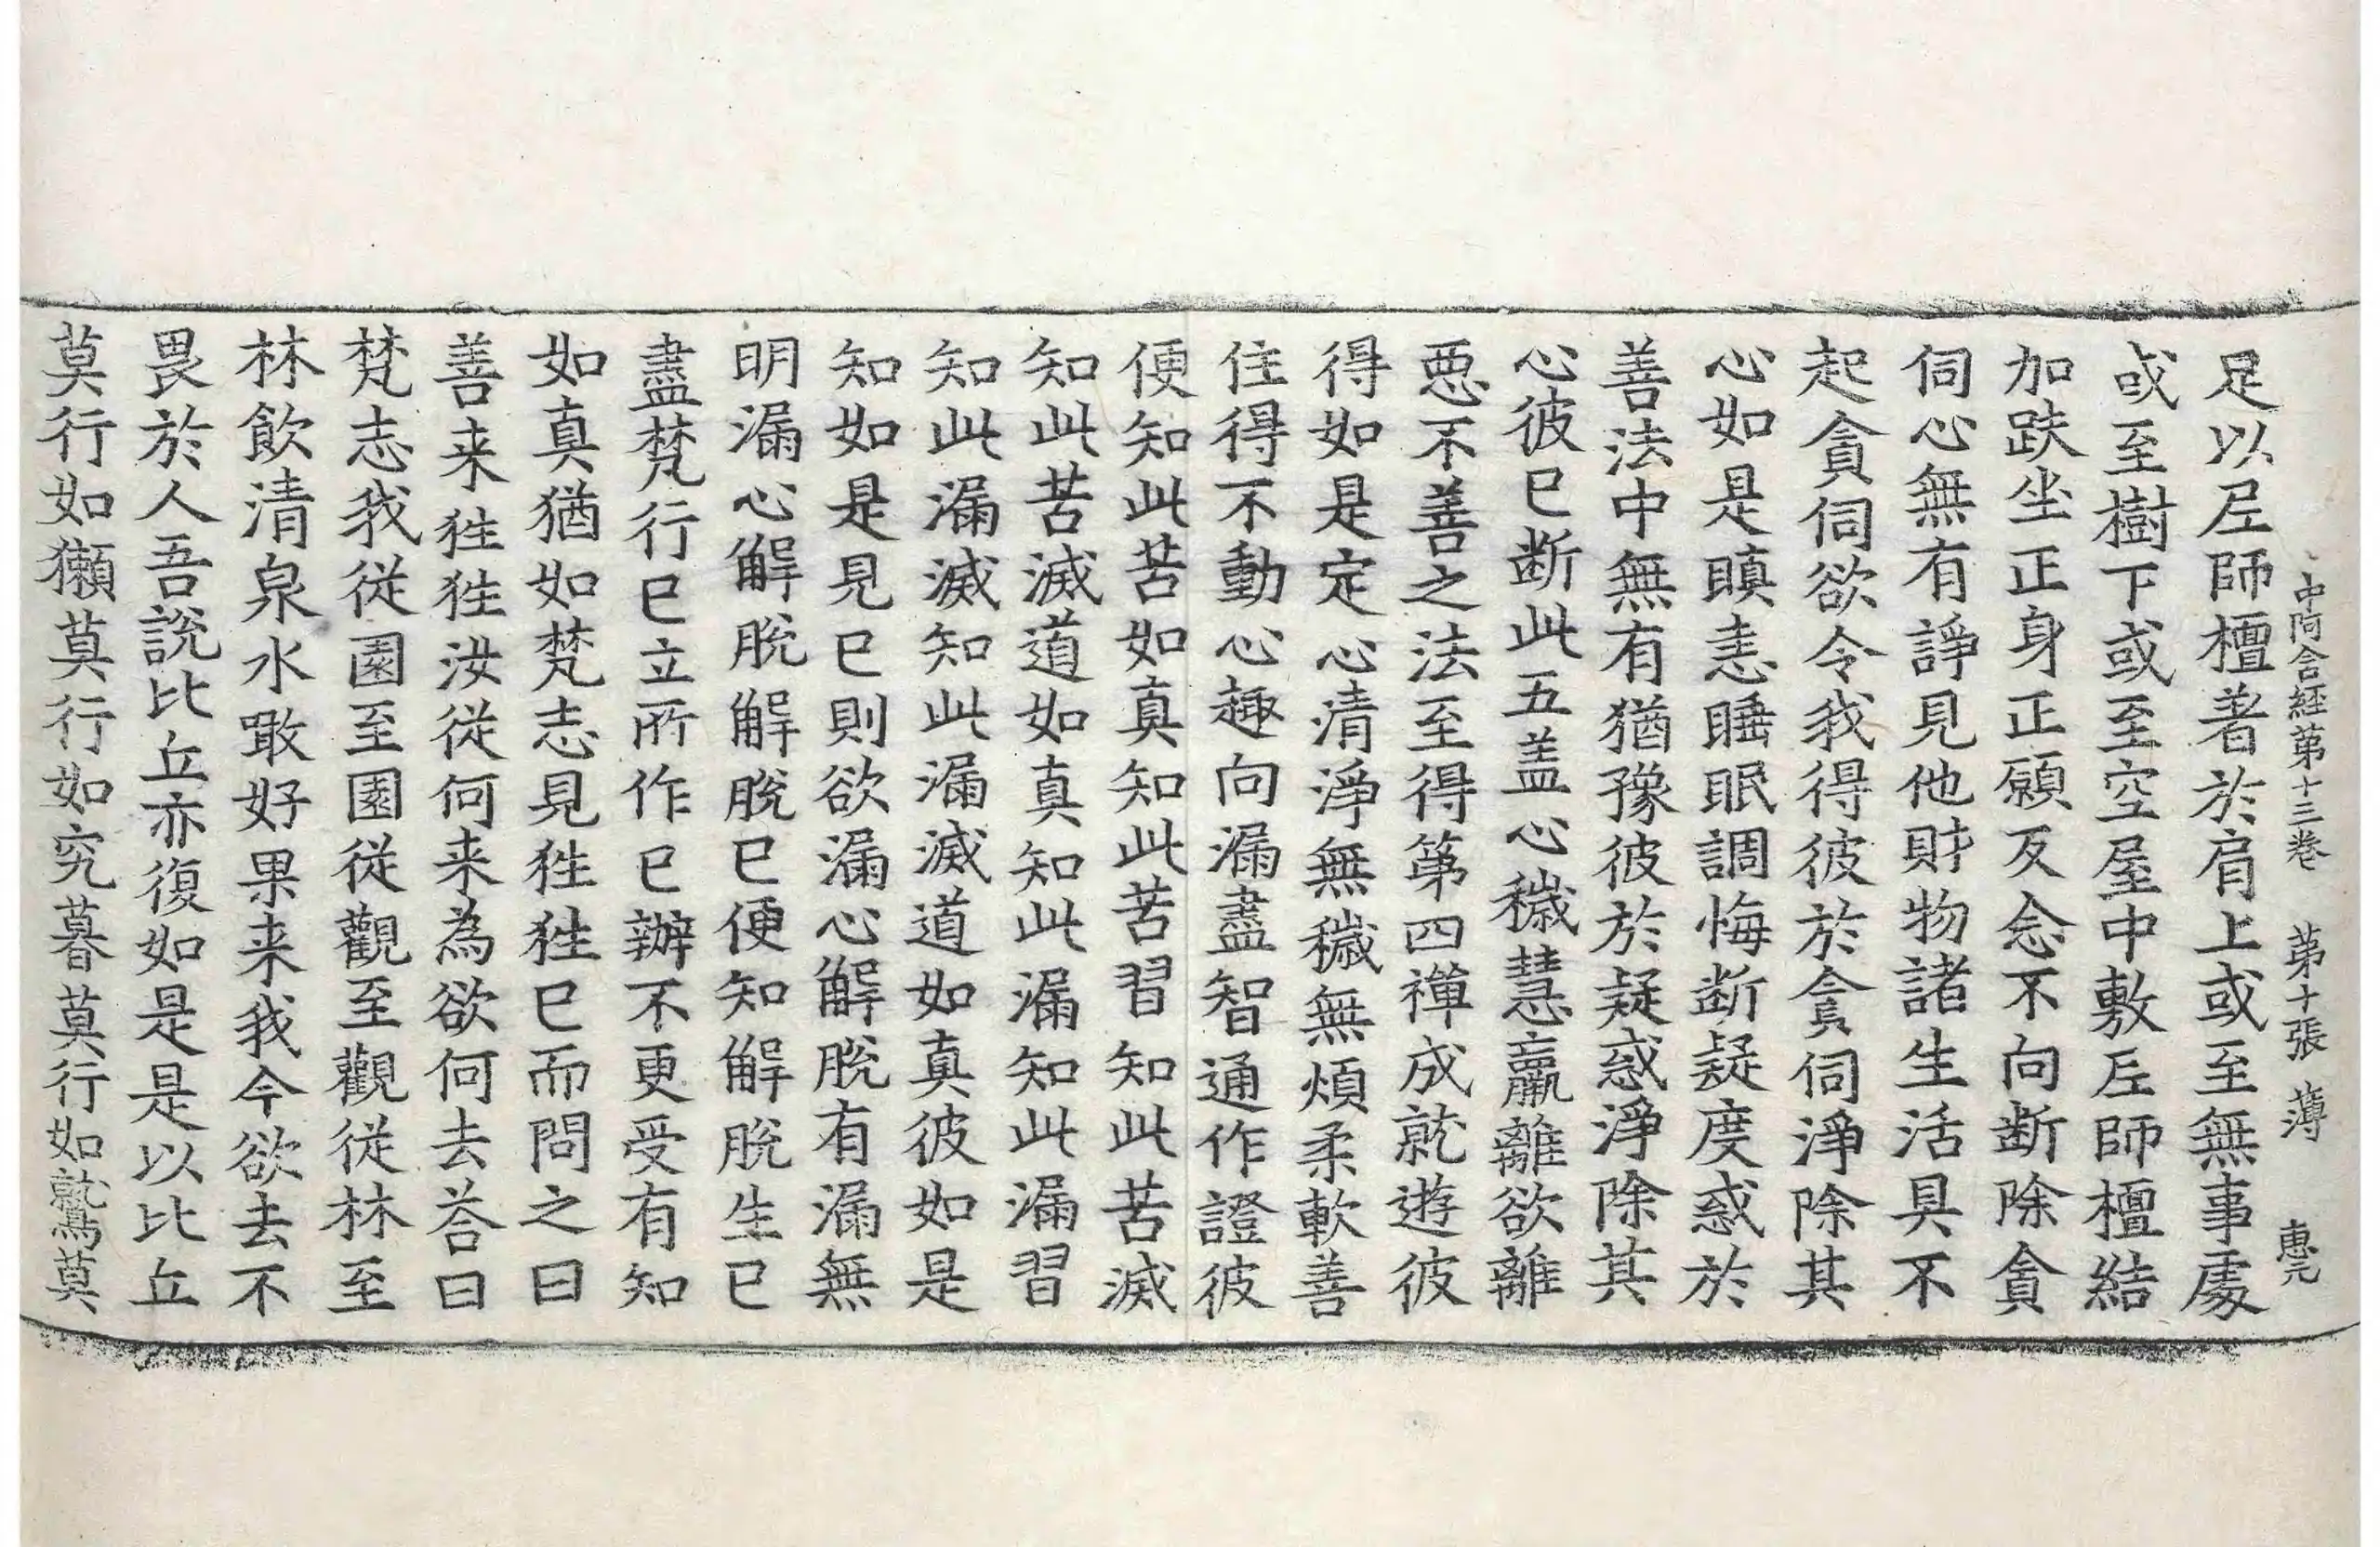 中阿含經第十三卷　第十張　薄　惠元
足以𡰱師檀著於肩上或至無事處
或至樹下或至空屋中敷𡰱師檀結
加趺坐正身正願反念不向断除貪
伺心無有諍見他財物諸生活具不
起貪伺欲令我得彼於貪伺淨除其
心如是瞋恚睡眠調悔断疑度惑於
善法中無有猶豫彼於疑惑淨除其
心彼已断此五盖心穢慧羸離欲離
惡不善之法至得第四禪成就遊彼
得如是定心清淨無穢無煩柔軟善
住得不動心趣向漏盡智通作證彼
便知此苦如真知此苦習知此苦滅
知此苦滅道如真知此漏知此漏習
知此漏滅知此漏滅道如真彼如是
知如是見已則欲漏心解脫有漏無
明漏心解脫解脫已便知解脫生已
盡梵行已立所作已辦不更受有知
如真猶如梵志見狌狌已而問之曰
善来狌狌汝從何来為欲何去荅曰
梵志我從園至園從觀至觀從林至
林飲清泉水噉好果来我今欲去不
畏於人吾說比丘亦復如是是以比丘
莫行如獺莫行如究暮莫行如鷲莫